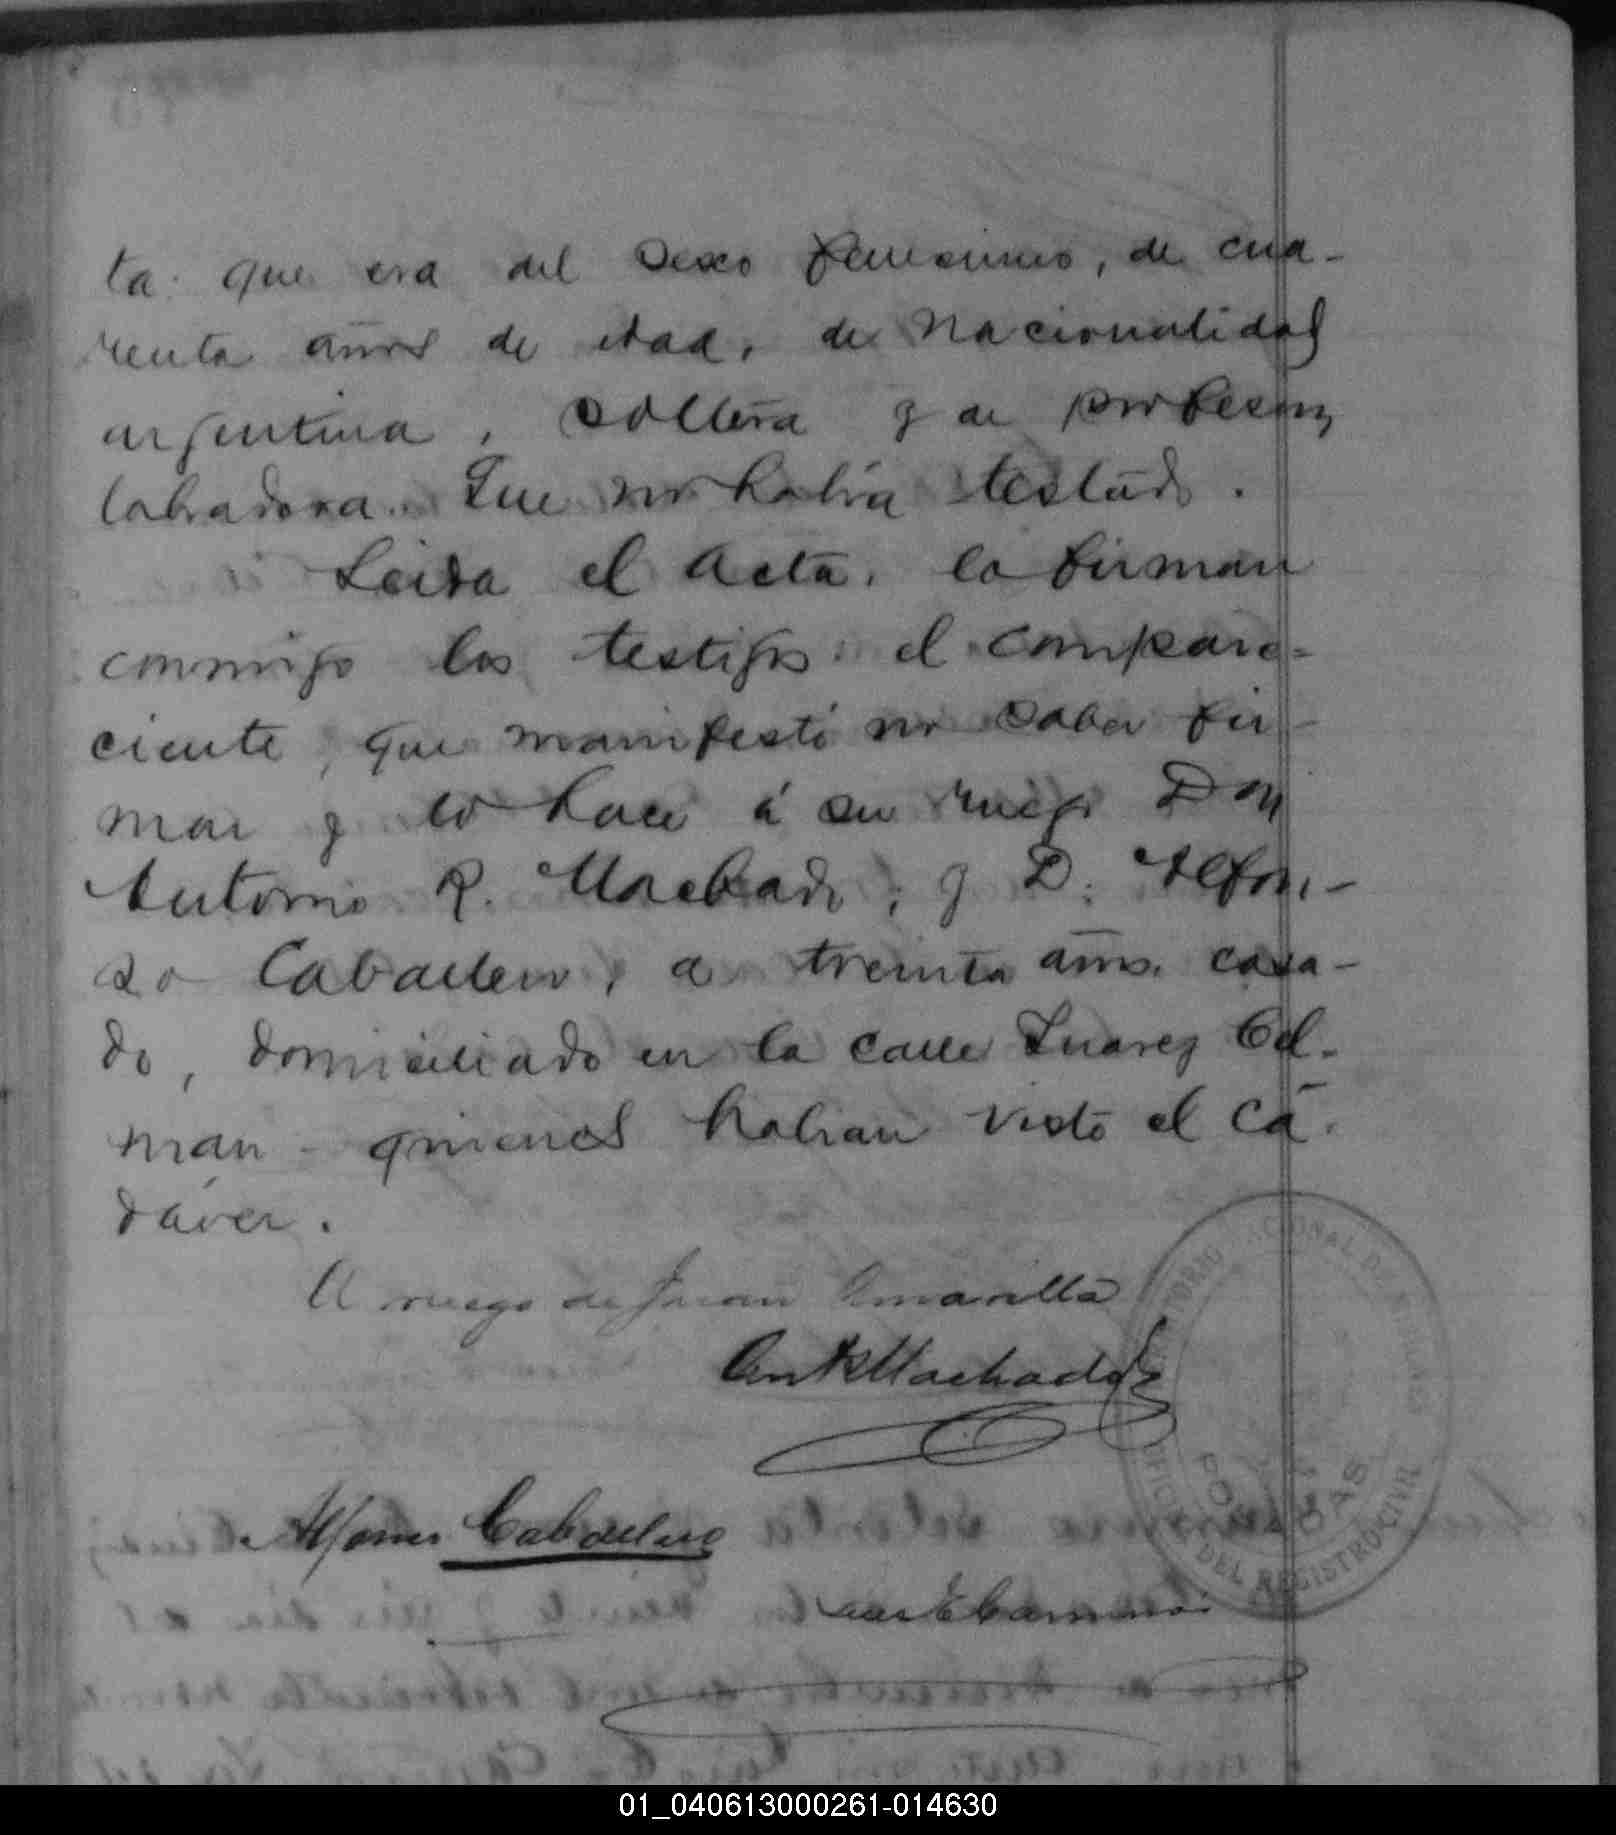 ta que era del sexo femenino, de cua-
renta años de edad, de nacionalidad
argentina, soltera y de profesion
labradora. Que no habia testado.
Leida el acta, la firman
conmigo los testigos el compare-
ciente, que manifestó no saber fir-
mar y lo hace á su ruego Don
Antonio R. Machado; y D. Alfon-
so Caballero, de treinta años, casa-
do, domiciliado en la calle Juarez Cel-
man - quienes habian visto el ca-
dáver.
A ruego de Juan Amarilla
Ant R Machado
Alfonso Caballero
TERRITORIO NACIONAL DE MISIONES
POSADAS
OFICINA DEL REGISTRO CIVIL
01_040613000261-014630